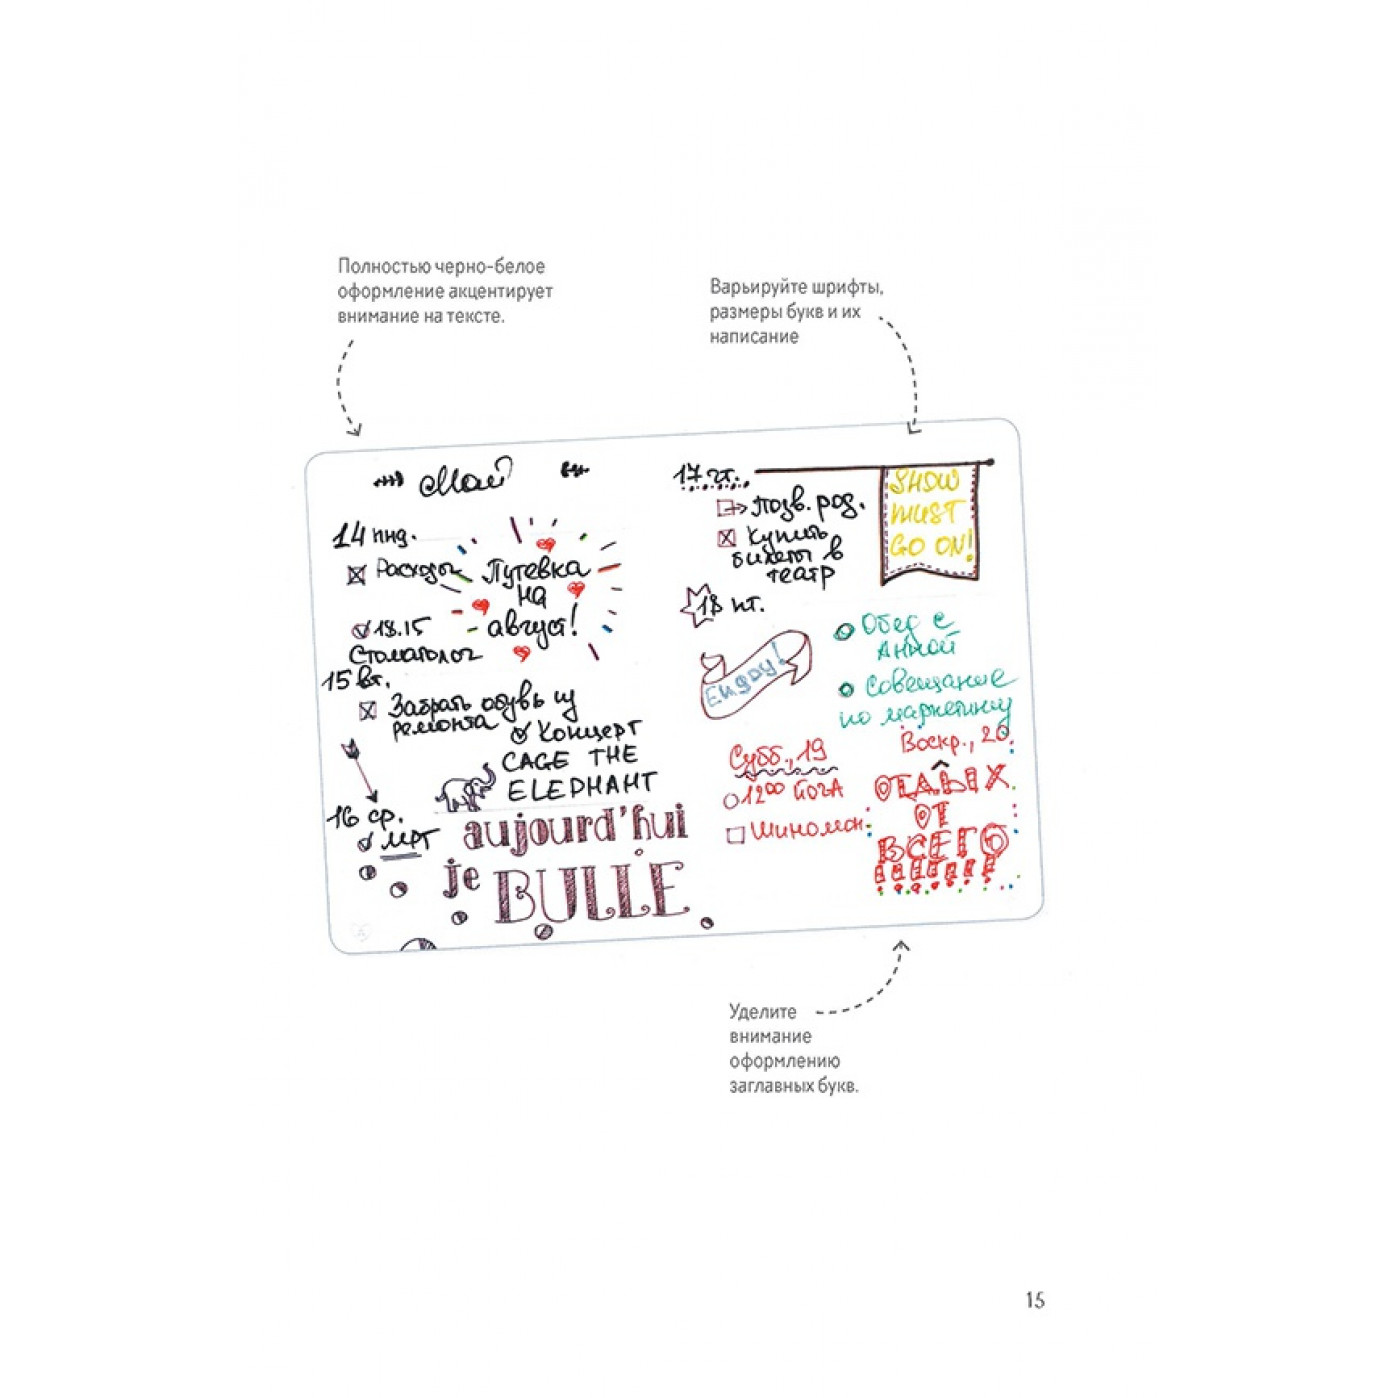 Полностью черно-белое
оформление акцентирует
внимание на тексте.
Варьируйте шрифты,
размеры букв и их
написание
Май
14 пнд.
Расходы
Путевка
на
август!
18.15
Стоматолог
15 вт.
Забрать обувь из
ремонта
Концерт
CAGE THE
ELEPHANT
16 ср.
МРТ
aujourd'hui
je BULLE
17 чт.
Позв. род.
Купить
билеты в
театр
SHOW
MUST
GO ON!
18 пт.
Enjoy!
Обед с
Анной
Совещание
по маркетингу
Субб., 19
12⁰⁰ йога
Шиномон.
Воскр., 20
ОТДЫХ
ОТ
ВСЕГО
!!!!!!!
Уделите
внимание
оформлению
заглавных букв.
15